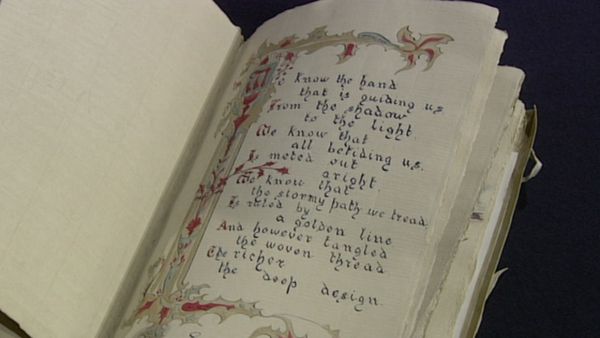 We know the hand
that is guiding us
From the shadow
to the light.
We know that
all betiding us.
Is meted out
aright.
We know that
the stormy path we tread.
Is ruled by
a golden line
And however tangled
the woven thread
The richer
the deep design.